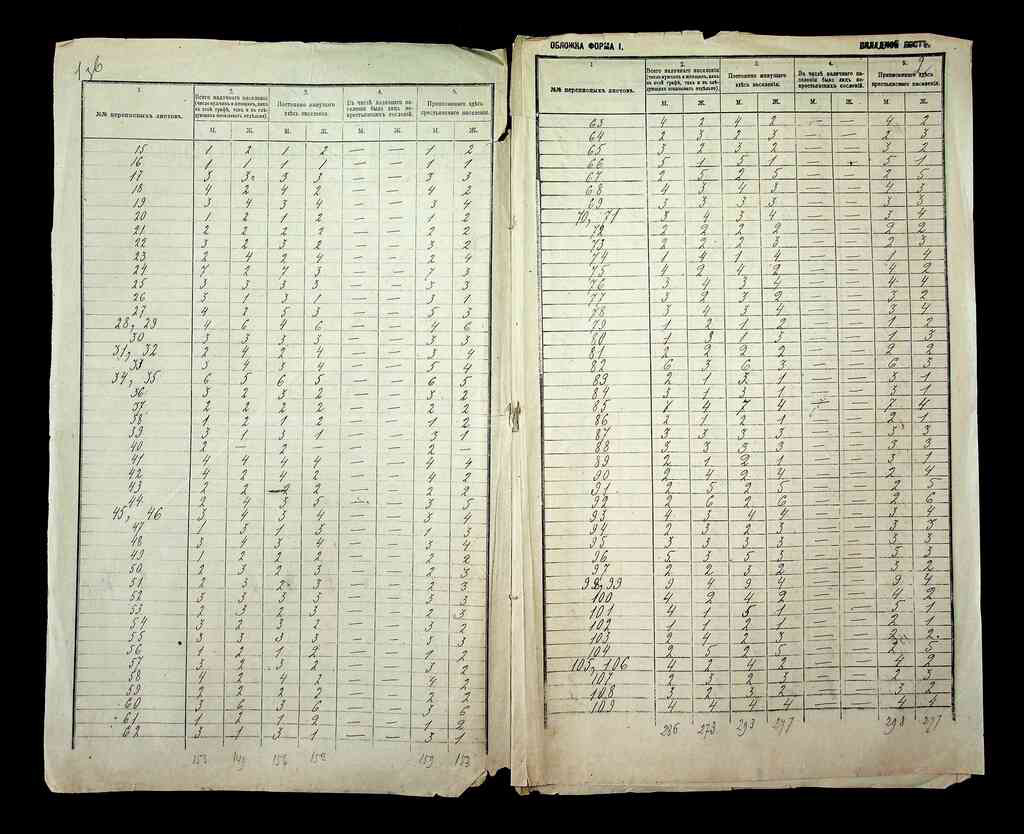 136
1
2.
3.
4.
5.
№№ переписныхъ листовъ.
Всего наличнаго населенія
Постоянно живущаго здѣсь населенія.
Въ числѣ наличнаго населенія было лицъ некрестьянскихъ сословій.
Приписаннаго здѣсь крестьянскаго населенія.
М. Ж. М. Ж. М. Ж. М. Ж.
15 1 2 1 2 — — 1 2
16 1 1 1 1 — — 1 1
17 3 3 3 3 — — 3 3
18 4 2 4 2 — — 4 2
19 3 4 3 4 — — 3 4
20 1 2 1 2 — — 1 2
21 2 2 2 2 — — 2 2
22 3 2 3 2 — — 3 2
23 2 4 2 4 — — 2 4
24 7 2 7 3 — — 7 3
25 3 3 3 3 — — 3 3
26 3 1 3 1 — — 3 1
27 4 3 5 3 — — 5 3
28, 29 4 6 4 6 — — 4 6
30 3 3 3 3 — — 3 3
31, 32 2 4 2 4 — — 3 4
33 3 4 3 4 — — 5 4
34, 35 6 5 6 5 — — 6 5
36 3 2 3 2 — — 3 2
37 2 2 2 2 — — 2 2
38 1 2 1 2 — — 1 2
39 3 1 3 1 — — 3 1
40 2 — 2 — — — 2 —
41 4 4 4 4 — — 4 4
42 4 2 4 2 — — 4 2
43 2 2 2 2 — — 2 2
44 2 4 3 5 — — 3 5
45, 46 3 4 3 4 — — 3 4
47 1 3 1 3 — — 1 3
48 3 4 3 4 — — 3 4
49 1 2 2 2 — — 2 2
50 2 3 2 3 — — 2 3
51 2 3 2 3 — — 2 3
52 3 3 3 3 — — 3 3
53 2 3 2 3 — — 2 3
54 3 2 3 2 — — 3 2
55 3 3 3 3 — — 3 3
56 1 2 1 2 — — 1 2
57 3 2 3 2 — — 3 2
58 4 2 4 2 — — 4 2
59 2 2 2 2 — — 2 2
60 3 6 3 6 — — 3 6
61 1 2 1 2 — — 1 2
62 3 1 3 1 — — 3 1
149 156 159 153
ОБЛОЖКА ФОРМА I.
ВКЛАДНОЙ ЛИСТЪ.
1
2.
3.
4.
5.
№№ переписныхъ листовъ.
Всего наличнаго населенія
Постоянно живущаго здѣсь населенія.
Въ числѣ наличнаго населенія было лицъ некрестьянскихъ сословій.
Приписаннаго здѣсь крестьянскаго населенія.
М. Ж. М. Ж. М. Ж. М. Ж.
63 4 2 4 2 — — 4 2
64 2 3 2 3 — — 2 3
65 3 2 3 2 — — 3 2
66 5 1 5 1 — — 5 1
67 2 5 2 5 — — 2 5
68 4 3 4 3 — — 4 3
69 3 3 3 3 — — 3 3
70, 71 3 4 3 4 — — 3 4
72 2 2 2 2 — — 2 2
73 2 2 2 3 — — 2 3
74 1 4 1 4 — — 1 4
75 4 2 4 2 — — 4 2
76 3 4 3 4 — — 4 4
77 3 2 3 2 — — 3 2
78 3 4 3 4 — — 3 4
79 1 2 1 2 — — 1 2
80 1 3 1 3 — — 1 3
81 2 2 2 2 — — 2 2
82 6 3 6 3 — — 6 3
83 2 1 3 1 — — 3 1
84 3 1 3 1 — — 3 1
85 7 4 7 4 — — 7 4
86 2 1 2 1 — — 2 1
87 3 3 3 3 — — 3 3
88 3 3 3 3 — — 3 3
89 2 1 2 1 — — 3 1
90 2 4 2 4 — — 2 4
91 2 5 2 5 — — 2 5
92 2 6 2 6 — — 2 6
93 4 3 4 4 — — 3 4
94 2 3 2 3 — — 3 3
95 3 3 3 3 — — 3 3
96 5 3 5 3 — — 5 3
97 2 2 3 2 — — 3 2
98, 99 9 4 9 4 — — 9 4
100 4 2 4 2 — — 4 2
101 4 1 5 1 — — 5 1
102 1 1 2 1 — — 2 1
103 2 4 2 3 — — 2 2
104 2 5 2 5 — — 2 5
105, 106 4 2 4 2 — — 4 2
107 2 3 2 3 — — 2 3
108 3 2 3 2 — — 3 2
109 4 4 4 4 — — 4 4
286 273 293 277 298 277